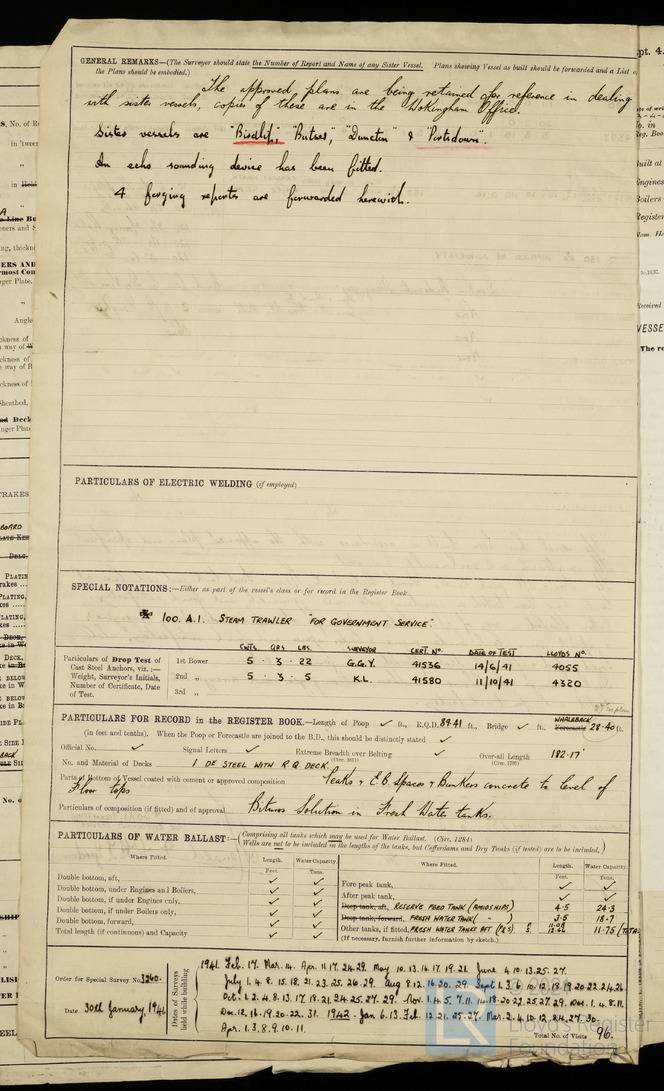 GENERAL REMARKS—(The Surveyor should state the Number of Report and Name of any Sister Vessel. Plans showing Vessel as built should be forwarded and a List of
the Plans should be embodied.)
The approved plans are being retained for reference in dealing
with sister vessels, copies of these are in the Wokingham Office.
Sister vessels are "Birdlip", "Butser", "Duncton" & "Portsdown".
An echo sounding device has been fitted.
4 forging reports are forwarded herewith.
PARTICULARS OF ELECTRIC WELDING (if employed)
SPECIAL NOTATIONS:—Either as part of the vessel's class or for record in the Register Book.
✠ 100. A.1. STEAM TRAWLER "FOR GOVERNMENT SERVICE".
CWTS. QRS LBS. SURVEYOR CERT. No. DATE OF TEST LLOYDS No.
Particulars of Drop Test of Cast Steel Anchors, viz.:— Weight, Surveyor's Initials, Number of Certificate, Date of Test.
1st Bower 5 . 3 . 22 G.G.Y. 41536 14/6/41 4055
2nd „ 5 . 3 . 5 K.L. 41580 11/10/41 4320
3rd „
PARTICULARS FOR RECORD in the REGISTER BOOK.—Length of Poop ✓ ft., R.Q.D. 89.41 ft., Bridge ✓ ft., Forecastle WHALEBACK 28.40 ft.
(in feet and tenths). When the Poop or Forecastle are joined to the B.D., this should be distinctly stated ✓
Official No. ✓ Signal Letters ✓ Extreme Breadth over Belting ✓ Over-all Length 182.17'
No. and Material of Decks 1 OF STEEL WITH R Q DECK.
Parts of Bottom of Vessel coated with cement or approved composition Peaks & E.B. Spaces & Bunkers concrete to level of
Floor tops
Particulars of composition (if fitted) and of approval. Bituros Solution in Fresh Water tanks.
PARTICULARS OF WATER BALLAST:—(Comprising all tanks which may be used for Water Ballast. (Circ. 1284)
Wells are not to be included in the lengths of the tanks, but Cofferdams and Dry Tanks (if tested) are to be included.)
Where Fitted. Length. Feet. Water Capacity. Tons. Where Fitted. Length. Feet. Water Capacity. Tons.
Double bottom, aft, ✓ ✓ Fore peak tank, ✓ ✓
Double bottom, under Engines and Boilers, ✓ ✓ After peak tank, ✓ ✓
Double bottom, if under Engines only, ✓ ✓ Deep tank, aft, RESERVE FEED TANK (AMIDSHIPS) 4.5 24.3
Double bottom, if under Boilers only, ✓ ✓ Deep tank, forward, FRESH WATER TANK ( " ) 3.5 18.7
Double bottom, forward, ✓ ✓ Other tanks, if fitted, FRESH WATER TANKS AFT (P&S) 11.75 (TOTAL
Total length (if continuous) and Capacity ✓ ✓ (If necessary, furnish further information by sketch.)
Order for Special Survey No. 3260.
Date 30th January, 1941
Dates of Surveys held while building
1941. Feb. 17. Mar. 14. Apr. 11. 17. 24. 29. May 10. 13. 14. 17. 19. 21. June 4. 10. 13. 25. 27.
July 1. 4. 8. 15. 18. 21. 23. 25. 26. 29. Aug 8. 12. 16. 20. 29. Sept 1. 3. 6. 10. 12. 18. 19. 20. 22. 24. 26.
Oct. 1. 2. 4. 8. 13. 17. 18. 21. 24. 25. 27. 29. Nov. 1. 4. 5. 7. 11. 14. 18. 20. 22. 25. 27. 29. Dec. 1. 4. 8. 11.
Dec. 12. 16. 19. 20. 22. 31. 1942 - Jan 6. 13. Feb. 12. 21. 25. 27. Mar. 2. 4. 10. 12. 24. 27. 30.
Apr. 1. 3. 8. 9. 10. 11.
Total No. of Visits 96.
Lloyd's Register
Foundation